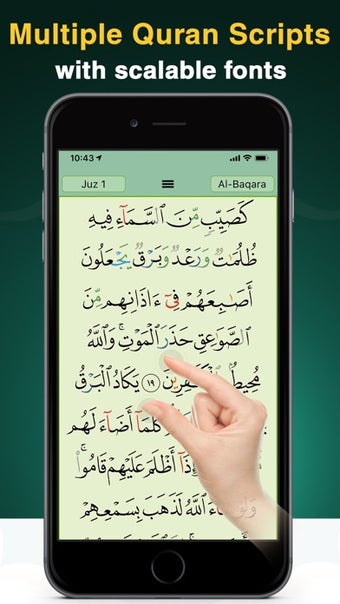 Multiple Quran Scripts
with scalable fonts
10:43
Juz 1
Al-Baqara
كَصَيِّبٖ مِّنَ ٱلسَّمَآءِ فِيهِ
ظُلُمَٰتٞ وَرَعۡدٞ وَبَرۡقٞ يَجۡعَلُونَ
أَصَٰبِعَهُمۡ فِيٓ ءَاذَانِهِم مِّنَ
ٱلصَّوَٰعِقِ حَذَرَ ٱلۡمَوۡتِۚ وَٱللَّهُ
مُحِيطُۢ ١٩ يَكَادُ ٱلۡبَرۡقُ
كُلَّمَآ أَضَآءَ لَهُم
أَظۡلَمَ عَلَيۡهِمۡ قَامُواْۚ
وَلَوۡ شَآءَ ٱللَّهُ لَذَهَبَ بِسَمۡعِهِمۡ